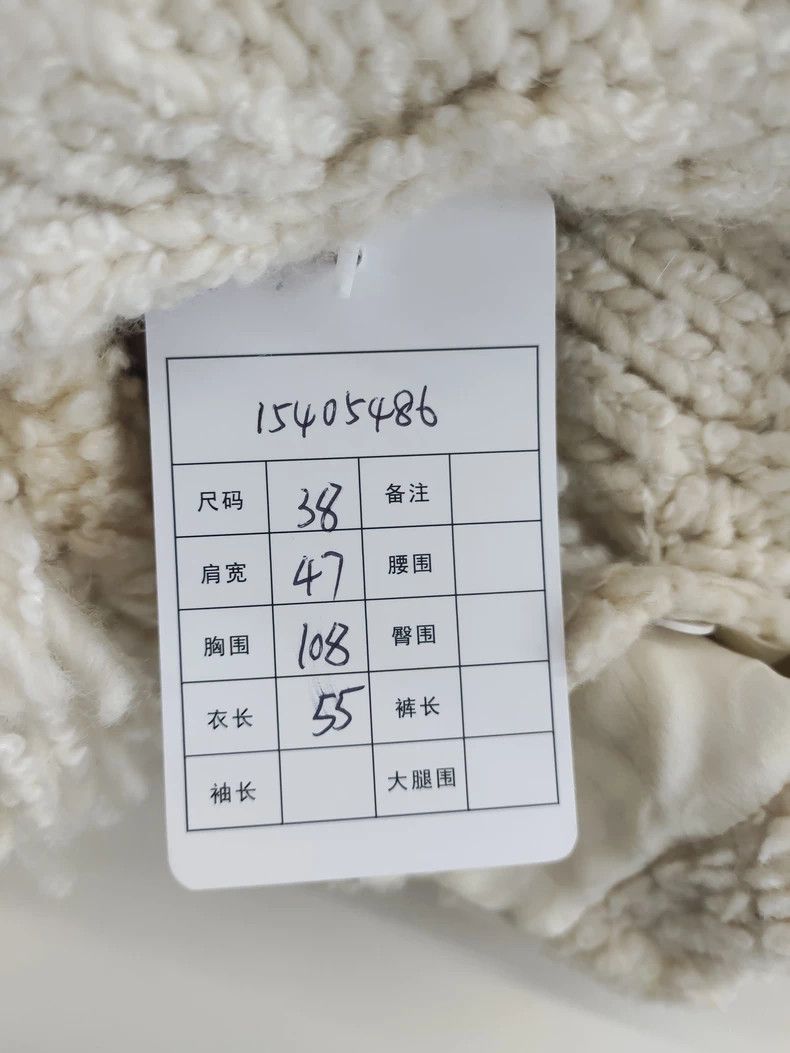 15405486
尺码 38 备注
肩宽 47 腰围
胸围 108 臀围
衣长 55 裤长
袖长 大腿围